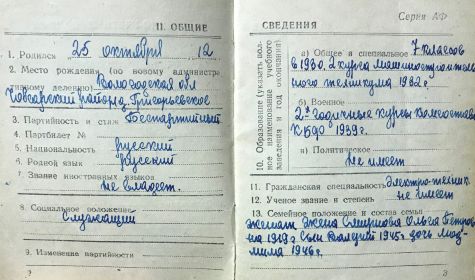 II. ОБЩИЕ
1. Родился 25 октября 12
2. Место рождения (по новому администра-
тивному делению) Вологодская обл
района, Григорьевское
3. Партийность и стаж Беспартийный
4. Партбилет №
5. Национальность русский
6. Родной язык русский
7. Знание иностранных языков
не владеет.
8. Социальное положение
Служащий
9. Изменение партийности
СВЕДЕНИЯ
Серия АФ
10. Образование (указать полное наименование учебного заведения и год окончания)
а) Общее и специальное 7 классов
в 1930. 2 курса машиностроитель
ного техникума 1932 г.
б) Военное
годичные курсы комсостава
1939 г.
в) Политическое
Не имеет
11. Гражданская специальность Электро-техник
12. Ученое звание и степень не имеет
13. Семейное положение и состав семьи
женат жена Смирнова Ольга Петров
на 1919 г Сын Валерий 1945 г. дочь Люд-
мила 1946 г.
3